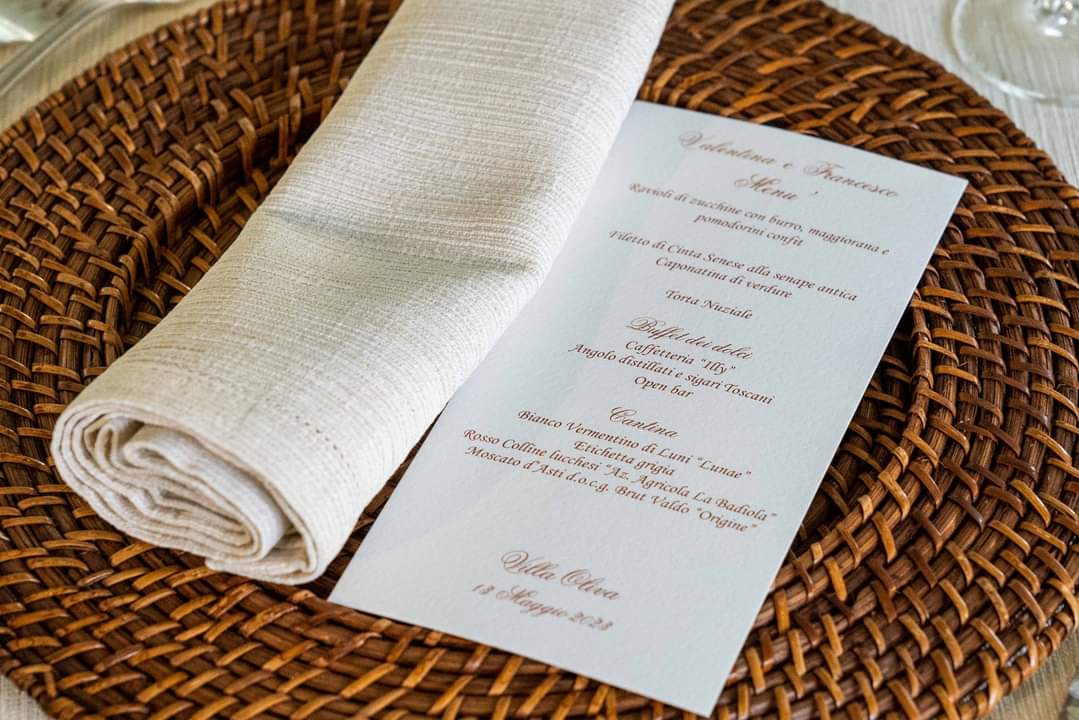 Valentina e Francesco
Menu
Ravioli di zucchine con burro, maggiorana e
pomodorini confit
Filetto di Cinta Senese alla senape antica
Caponatina di verdure
Torta Nuziale
Buffet dei dolci
Caffetteria “Illy”
Angolo distillati e sigari Toscani
Open bar
Cantina
Bianco Vermentino di Luni “Lunae”
Etichetta grigia
Rosso Colline lucchesi “Az. Agricola La Badiola”
Moscato d’Asti d.o.c.g. Brut Valdo “Origine”
Villa Oliva
Maggio